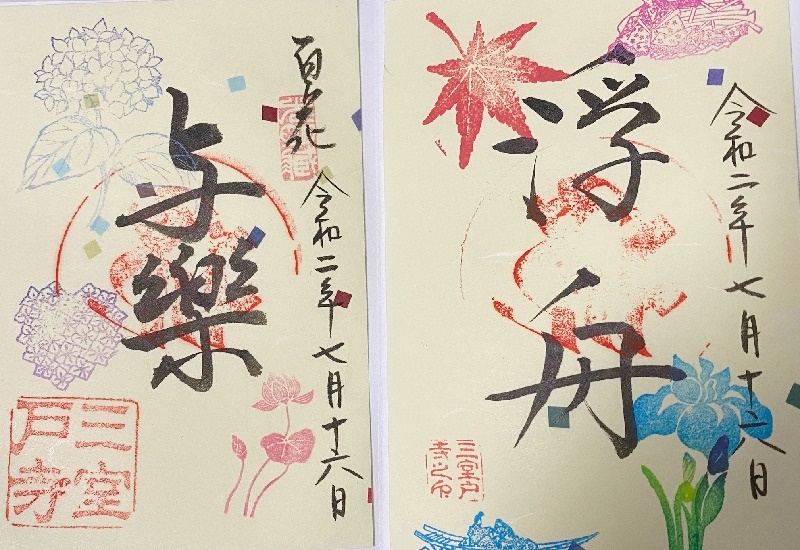 百花
与樂
令和二年七月十六日
三室
戸寺
浮舟
令和二年七月十六日
三室戸
寺之印